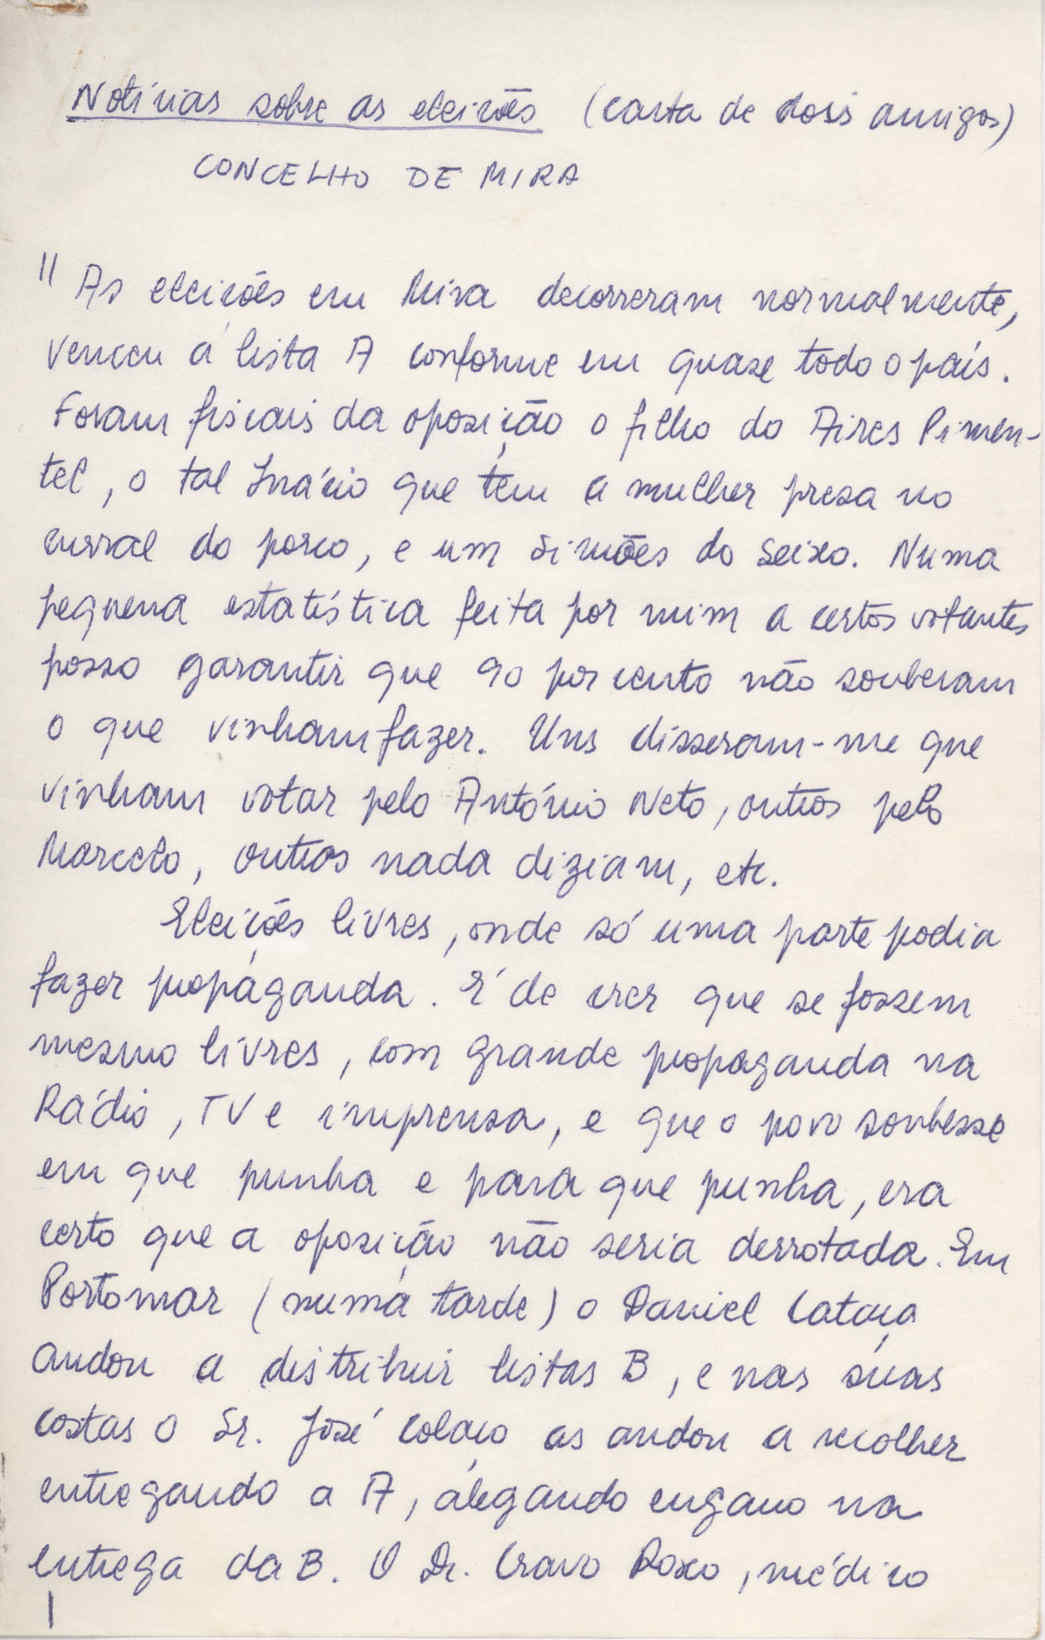 Notícias sobre as eleições (carta de dois amigos)
CONCELHO DE MIRA
" As eleições em Mira decorreram normalmente,
venceu a lista A conforme em quase todo o país.
Foram fiscais da oposição o filho do Aires Pimen-
tel, o tal Inácio que tem a mulher presa no
curral do porco, e um Simões do Seixo. Numa
pequena estatística feita por mim a certos votantes
posso garantir que 90 por cento não souberam
o que vinham fazer. Uns disseram-me que
vinham votar pelo António Neto, outros pelo
Marcelo, outros nada diziam, etc.
Eleições livres, onde só uma parte podia
fazer propaganda. É de crer que se fossem
mesmo livres, com grande propaganda na
Rádio, TV e imprensa, e que o povo soubesse
em que punha e para que punha, era
certo que a oposição não seria derrotada. Em
Portomar (numa tarde) o Daniel Lataça
andou a distribuir listas B, e nas suas
costas o Sr. José Colaço as andou a recolher
entregando a A, alegando engano na
entrega da B. O Dr. Cravo Roxo, médico
1